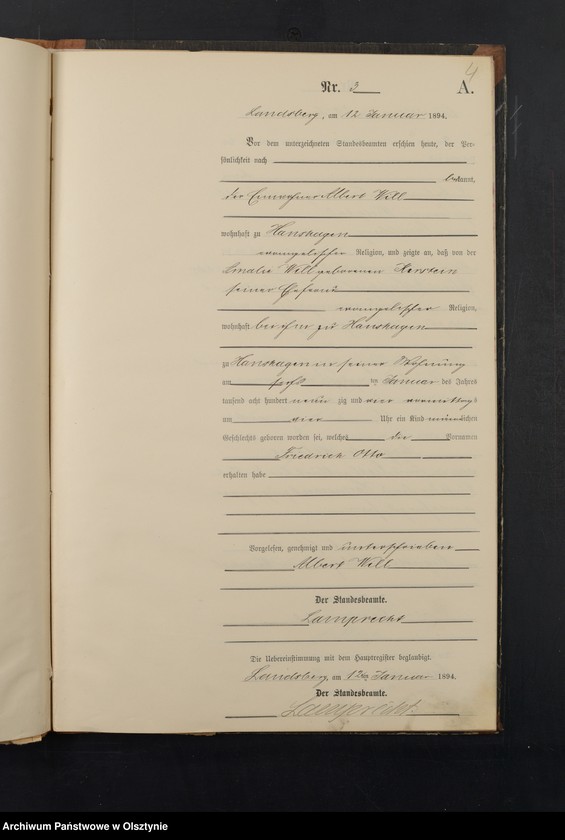 4
Nr. 3
A.
Landsberg, am 12 Januar 1894.
Vor dem unterzeichneten Standesbeamten erschien heute, der Per-
sönlichkeit nach
bekannt,
der Einwohner Albert Will
wohnhaft zu Hanshagen
evangelischer Religion, und zeigte an, daß von der
Amalie Will geborenen
seiner Ehefrau
evangelischer Religion,
wohnhaft bei ihm zu Hanshagen
zu Hanshagen in seiner Wohnung
am des Januar des Jahres
tausend acht hundert neun zig und vier vormittags
am vier Uhr ein Kind männlichen
Geschlechts geboren worden sei, welches die Vornamen
Friedrich Otto
erhalten habe
Vorgelesen, genehmigt und unterschrieben
Albert Will
Der Standesbeamte.
Lamprecht
Die Uebereinstimmung mit dem Hauptregister beglaubigt.
Landsberg, am 12ten Januar 1894.
Der Standesbeamte.
Lamprecht
Archiwum Państwowe w Olsztynie